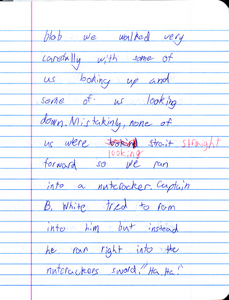 blob we walked very
carefully with some of
us looking up and
some of us looking
down. Mistakinly, none of
us were strait straight
looking
forward so we ran
into a nutcracker. Captain
B. White tried to ram
into him but instead
he ran right into the
nutcrackers sword. "Ha Ha!